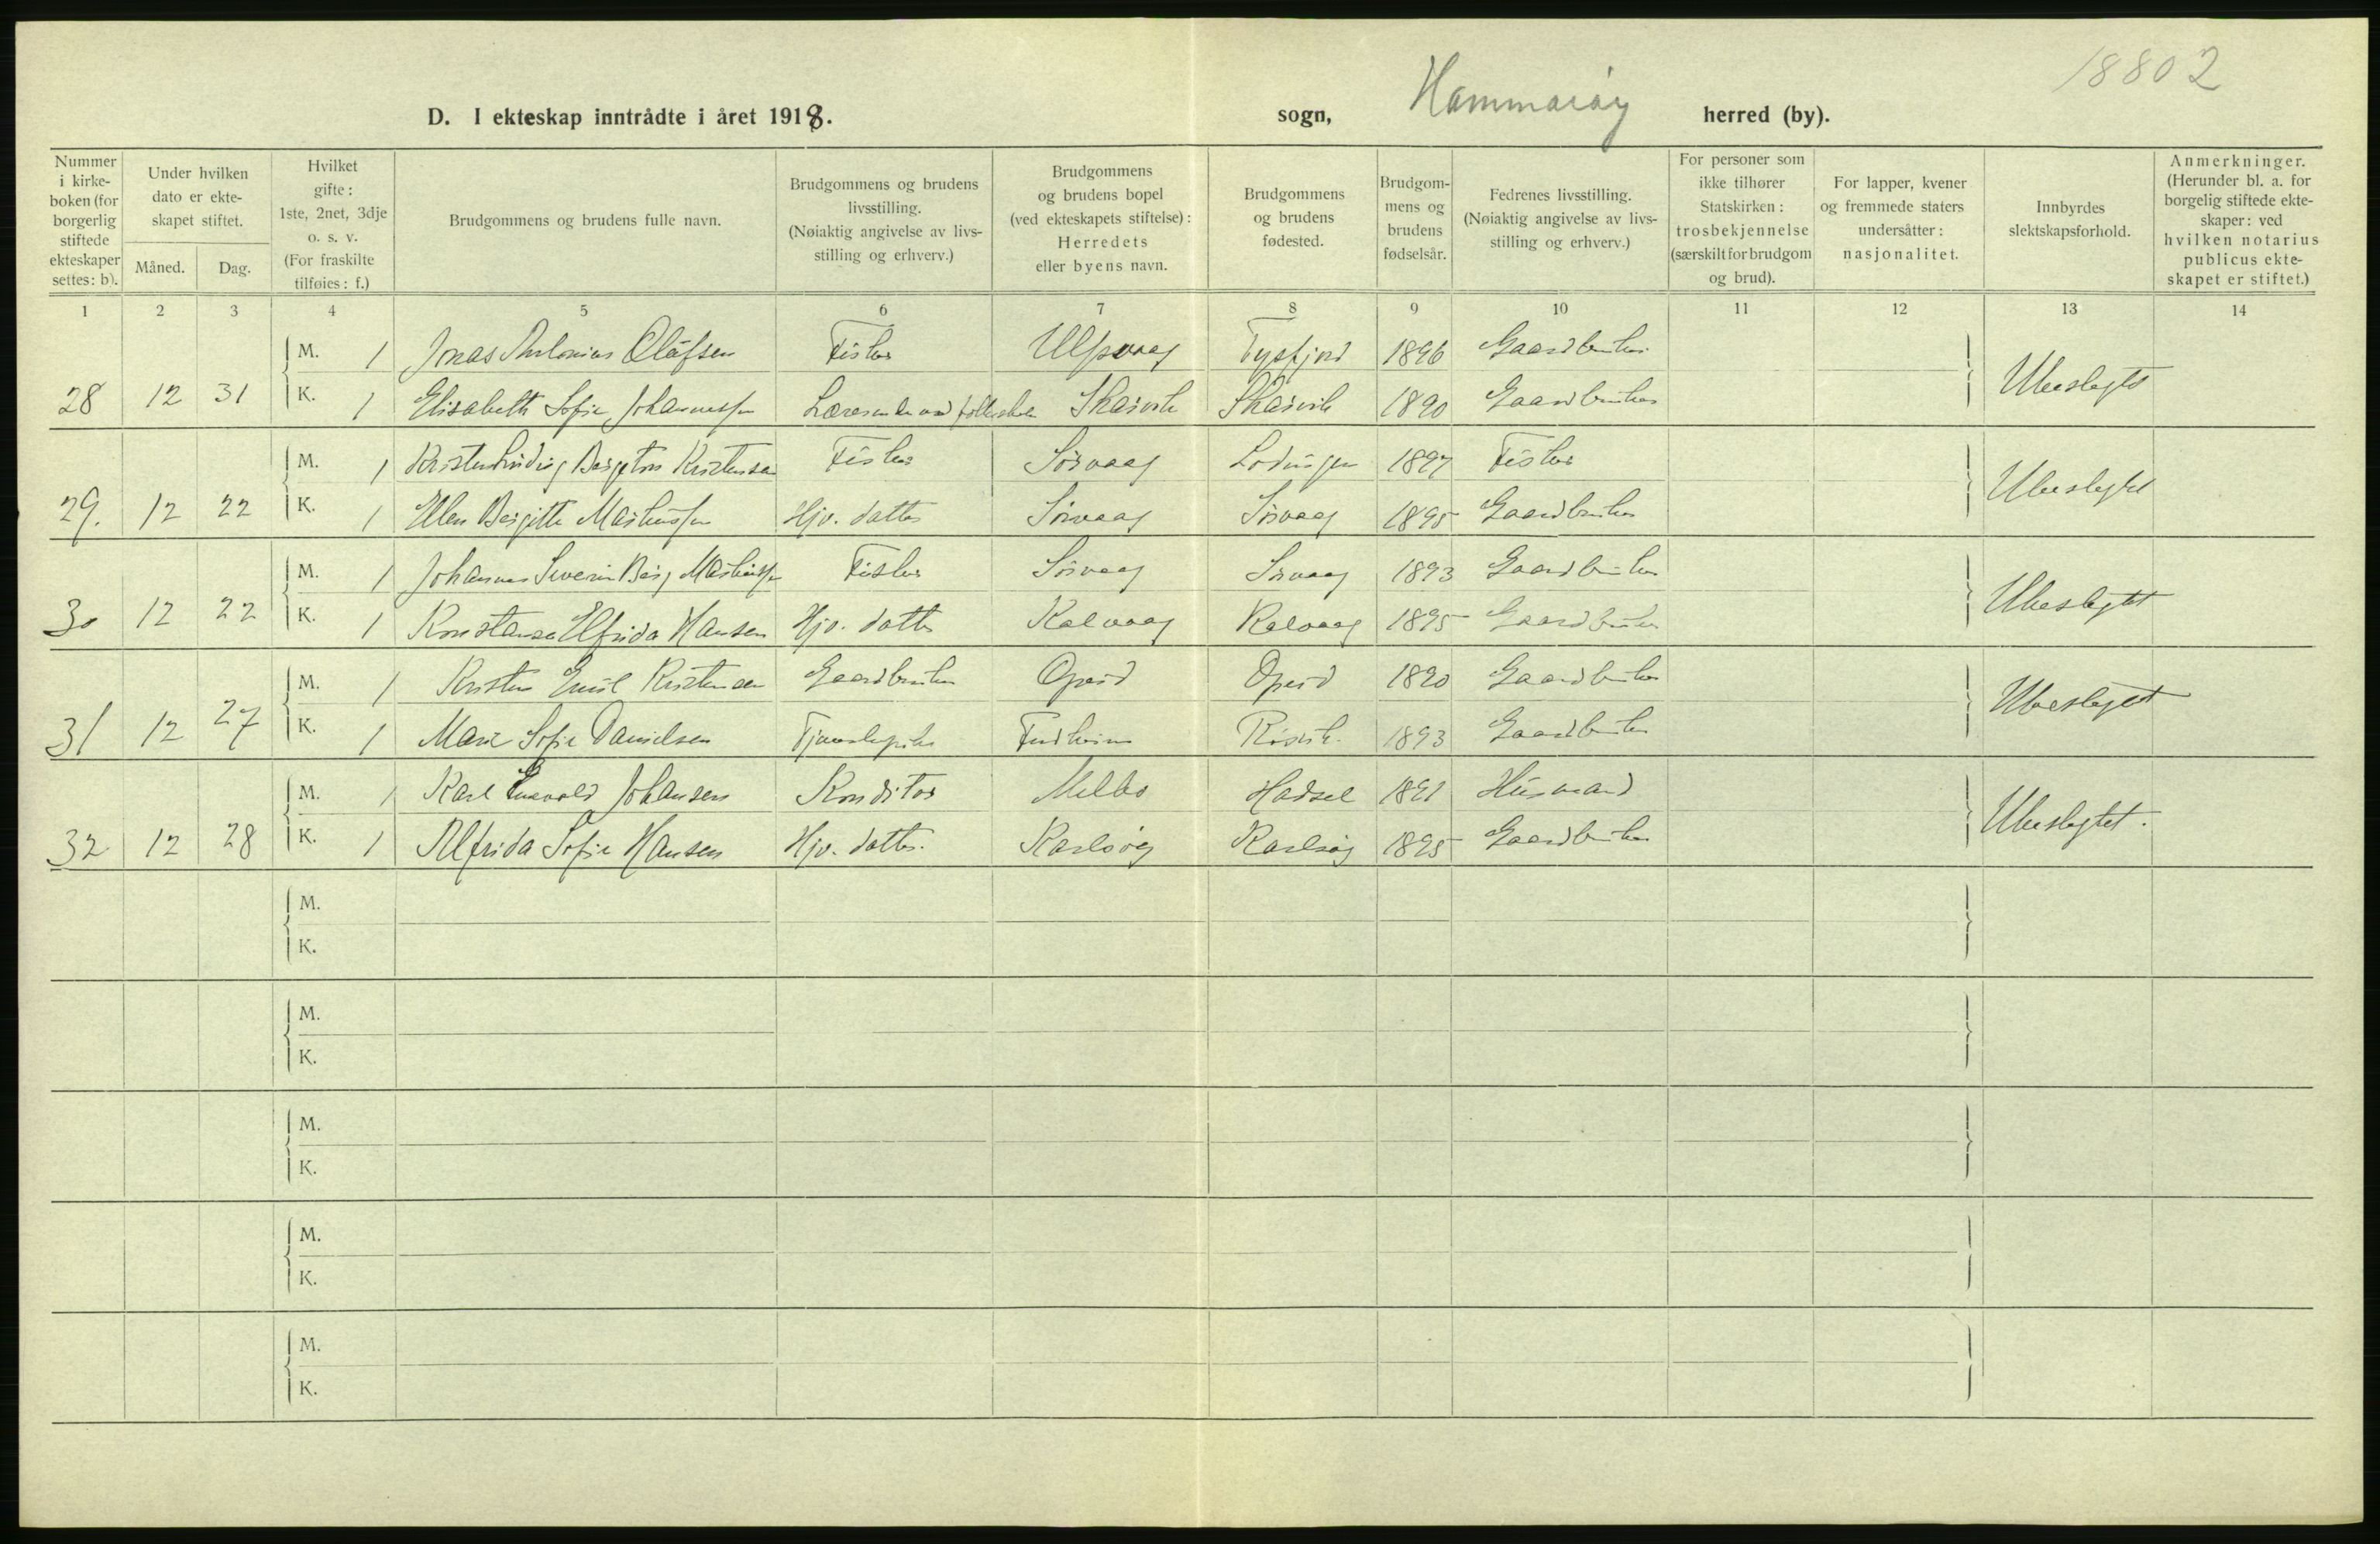 18802
D. I ekteskap inntrådte i året 1918. sogn, Hammarøy herred (by).
Nummer i kirke-boken (for borgerlig stiftede ekteskaper settes: b).
Under hvilken dato er ekte-skapet stiftet.
Måned. Dag.
Hvilket gifte: 1ste, 2net, 3dje o. s. v. (For fraskilte tilføies: f.)
Brudgommens og brudens fulle navn.
Brudgommens og brudens livsstilling. (Nøiaktig angivelse av livs-stilling og erhverv.)
Brudgommens og brudens bopel (ved ekteskapets stiftelse): Herredets eller byens navn.
Brudgommens og brudens fødested.
Brudgom-mens og brudens fødselsår.
Fedrenes livsstilling. (Nøiaktig angivelse av livs-stilling og erhverv.)
For personer som ikke tilhører Statskirken: trosbekjennelse (særskilt for brudgom og brud).
For lapper, kvener og fremmede staters undersåtter: nasjonalitet.
Innbyrdes slektskapsforhold.
Anmerkninger. (Herunder bl. a. for borgelig stiftede ekte-skaper: ved hvilken notarius publicus ekte-skapet er stiftet.)
1 2 3 4 5 6 7 8 9 10 11 12 13 14
M. 1 Jonas Antonius Olafsen Fisker Ulpvaag Tysfjord 1896 Gaardbruker
28 12 31 K. 1 Elisabeth Sofie Johannessen Lærerinde ved folkeskolen Skarvik Skarvik 1890 Gaardbruker Ubeslegtet
M. 1 Kristen Bergeton Kristensen Fisker Sørvaag Lødingen 1897 Fisker
29. 12 22 K. 1 Ellen Bergitte Markussen Hjv. datter Sørvaag Sørvaag 1895 Gaardbruker Ubeslegtet
M. 1 Johannes Severin Berg Markussen Fisker Sørvaag Sørvaag 1893 Gaardbruker
30 12 22 K. 1 Konstanse Elfrida Hansen Hjv. datter Kalvaag Kalvaag 1895 Gaardbruker Ubeslegtet
M. 1 Kristen Emil Kristensen Gaardbruker Opeid Opeid 1890 Gaardbruker
31 12 27 K. 1 Marie Sofie Danielsen Tjenestepike Røsvik 1893 Gaardbruker Ubeslegtet
M. 1 Karl Enevold Johansen Konditor Melbo Hadsel 1891 Husmand
32 12 28 K. 1 Alfrida Sofie Hansen Hjv. datter. Karlsøy Karlsøy 1895 Gaardbruker Ubeslegtet.
M.
K.
M.
K.
M.
K.
M.
K.
M.
K.